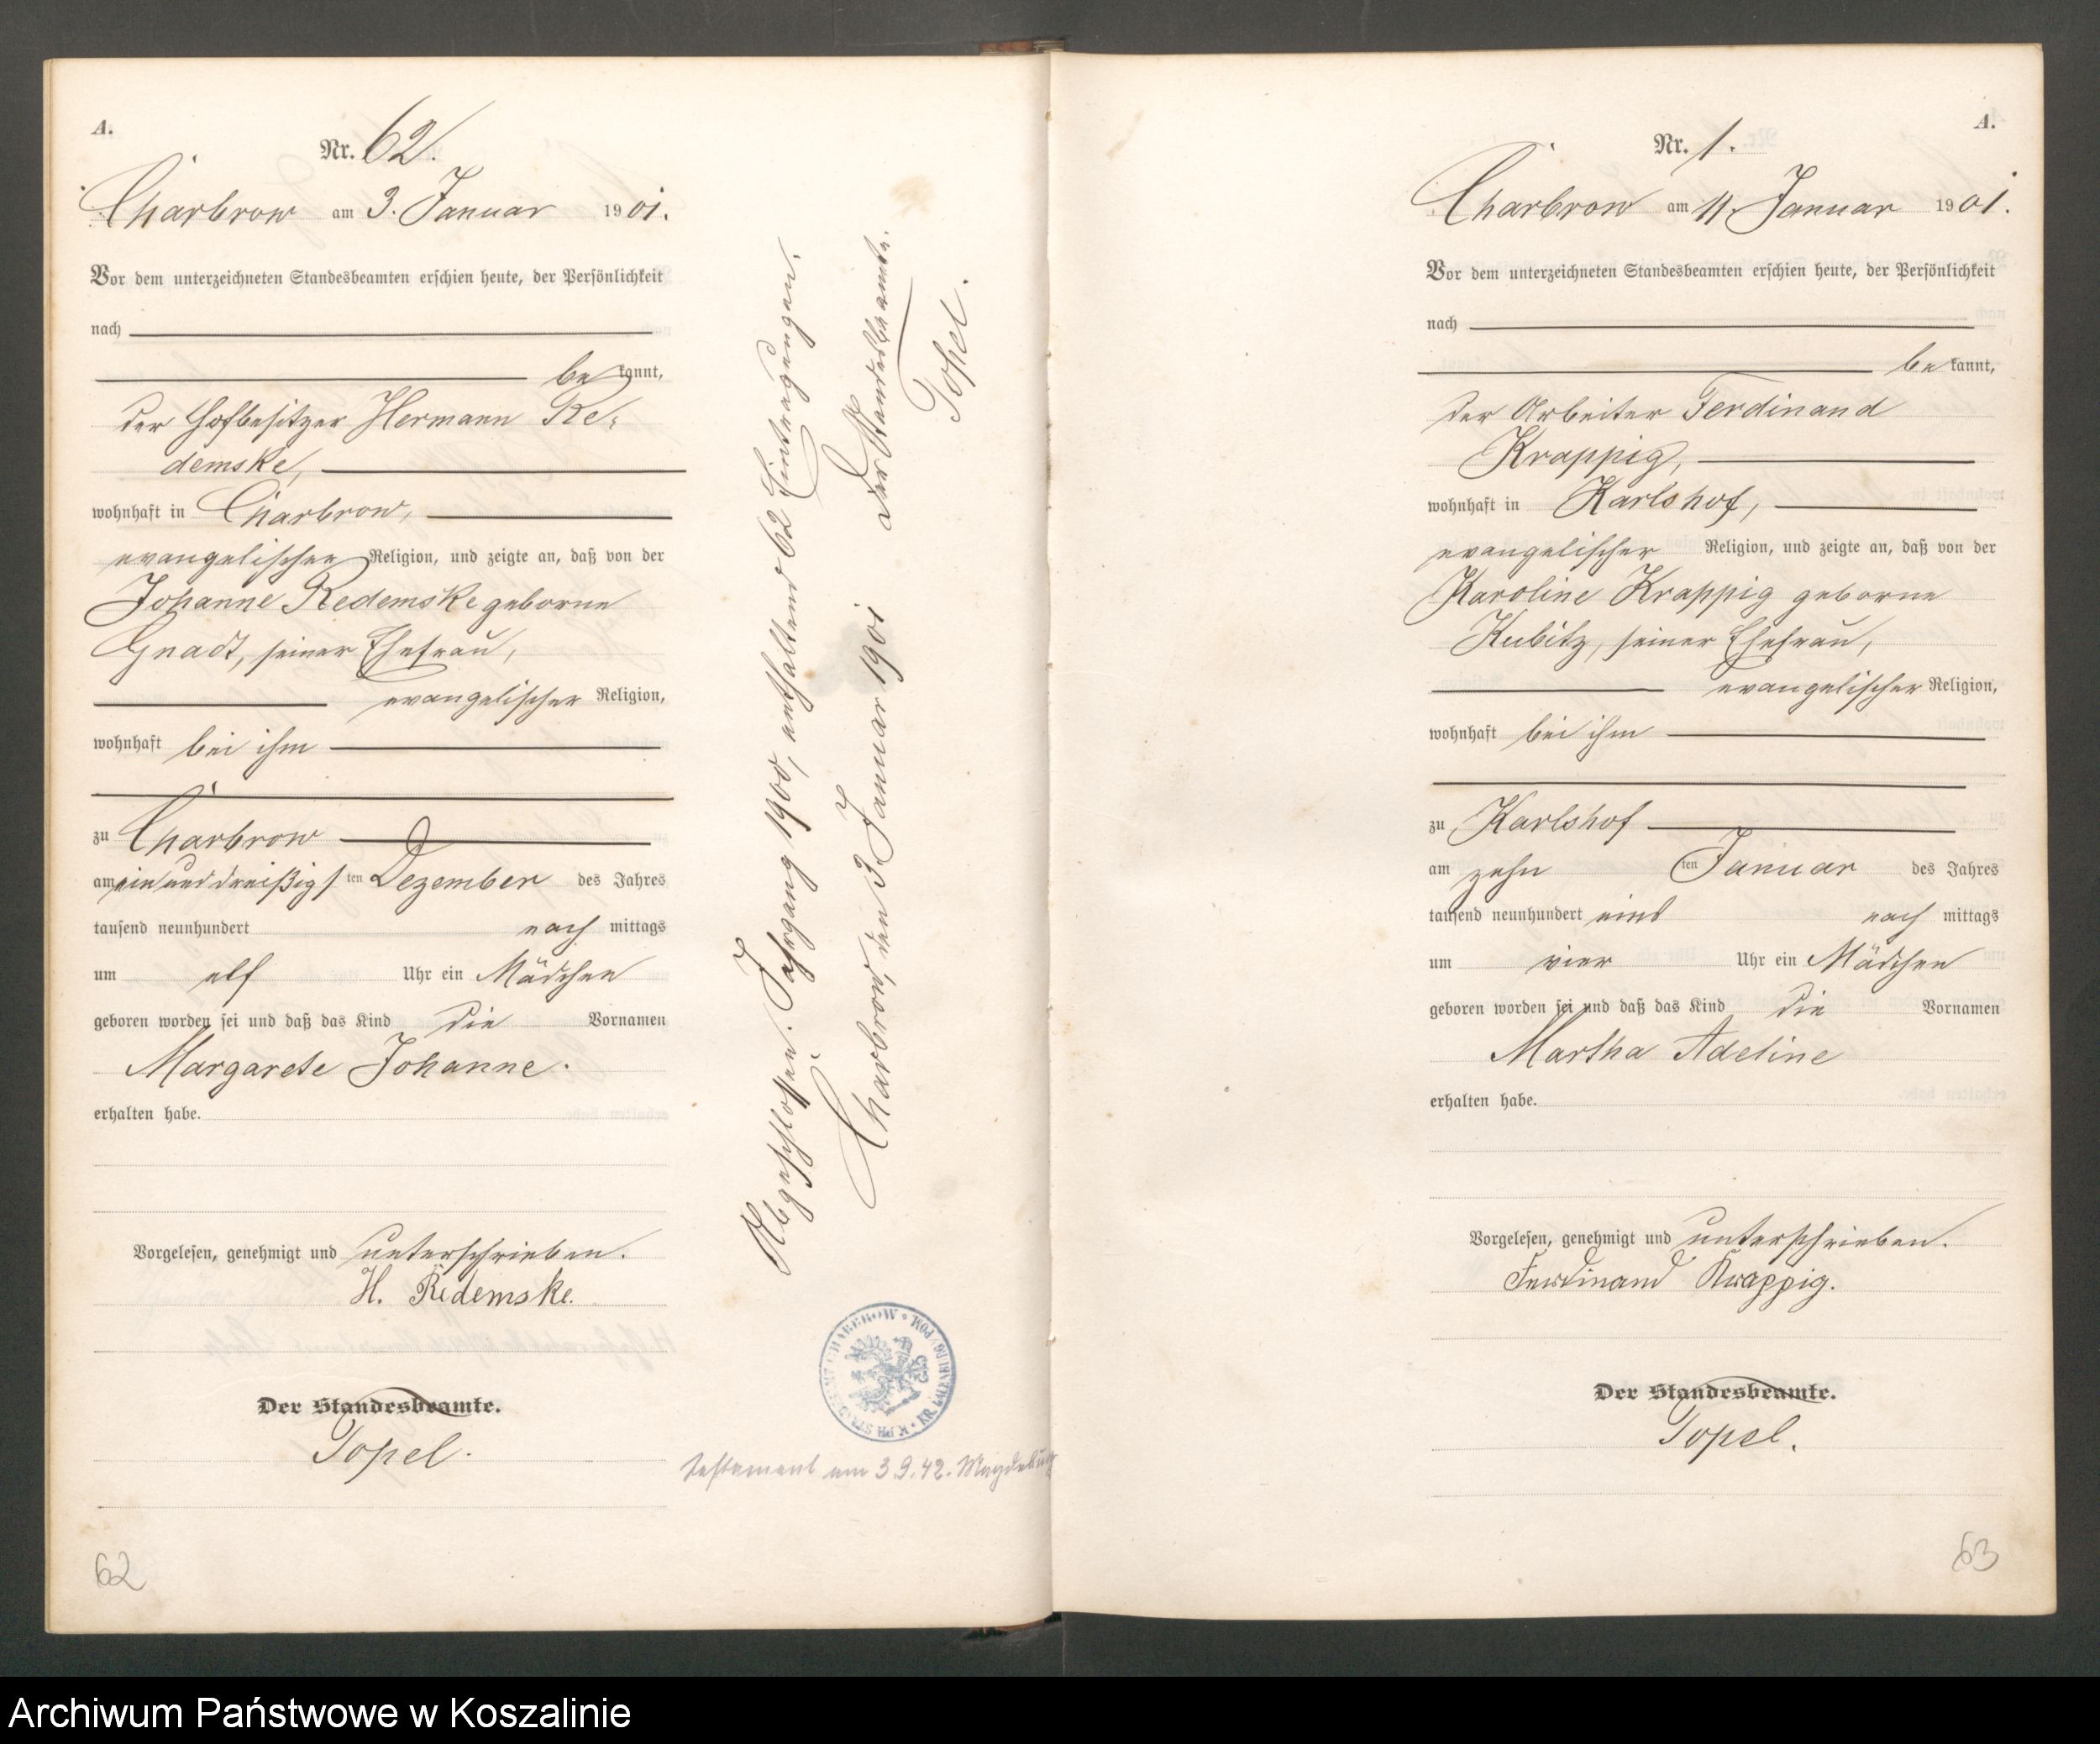 A.
Nr. 62.
Charbrow am 3. Januar 1901.
Vor dem unterzeichneten Standesbeamten erschien heute, der Persönlichkeit
nach
bekannt,
der Hofbesitzer Hermann Re-
demske,
wohnhaft in Charbrow,
evangelischer Religion, und zeigte an, daß von der
Johanne Redemske geborne
Gnadt, seiner Ehefrau,
evangelischer Religion,
wohnhaft bei ihm
zu Charbrow
am ein und dreißigsten Dezember des Jahres
tausend neunhundert nach mittags
um elf Uhr ein Mädchen
geboren worden sei und daß das Kind die Vornamen
Margarete Johanne.
erhalten habe.
Vorgelesen, genehmigt und unterschrieben.
H. Redemske.
Der Standesbeamte.
Topel.
62
Abgeschlossen. Jahrgang 1900, enthaltend 62 Eintragungen.
Charbrow, den 3. Januar 1901
Der Standesbeamte.
Topel.
K. PR. STANDESAMT CHARBROW • KR. LAUENBURG/POM.
Testament am 3.9.42. Magdeburg
A.
Nr. 1.
Charbrow am 11. Januar 1901.
Vor dem unterzeichneten Standesbeamten erschien heute, der Persönlichkeit
nach
bekannt,
der Arbeiter Ferdinand
Krappig,
wohnhaft in Karlshof,
evangelischer Religion, und zeigte an, daß von der
Karoline Krappig geborne
Kubitz, seiner Ehefrau,
evangelischer Religion,
wohnhaft bei ihm
zu Karlshof
am zehn ten Januar des Jahres
tausend neunhundert eins nach mittags
um vier Uhr ein Mädchen
geboren worden sei und daß das Kind die Vornamen
Martha Adeline
erhalten habe.
Vorgelesen, genehmigt und unterschrieben.
Ferdinand Krappig.
Der Standesbeamte.
Topel.
63
Archiwum Państwowe w Koszalinie